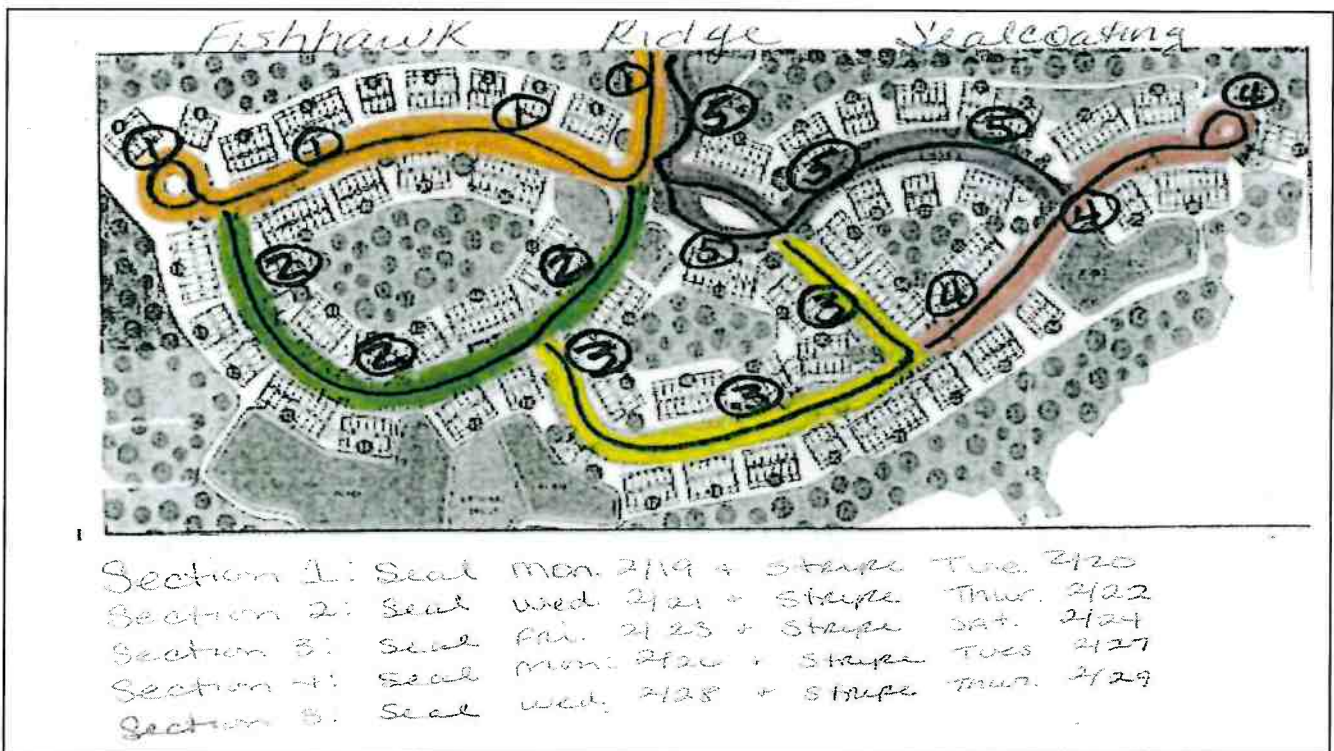 Fishhawk Ridge Sealcoating
1
4
1
5
5
1
1
5
4
2
2
5
3
4
2
3
3
Section 1: Seal Mon. 2/19 + Stripe Tue. 2/20
Section 2: Seal Wed. 2/21 + Stripe Thur. 2/22
Section 3: Seal Fri. 2/23 + Stripe Sat. 2/24
Section 4: Seal Mon. 2/26 + Stripe Tues 2/27
Section 5: Seal Wed. 2/28 + Stripe Thur. 2/29